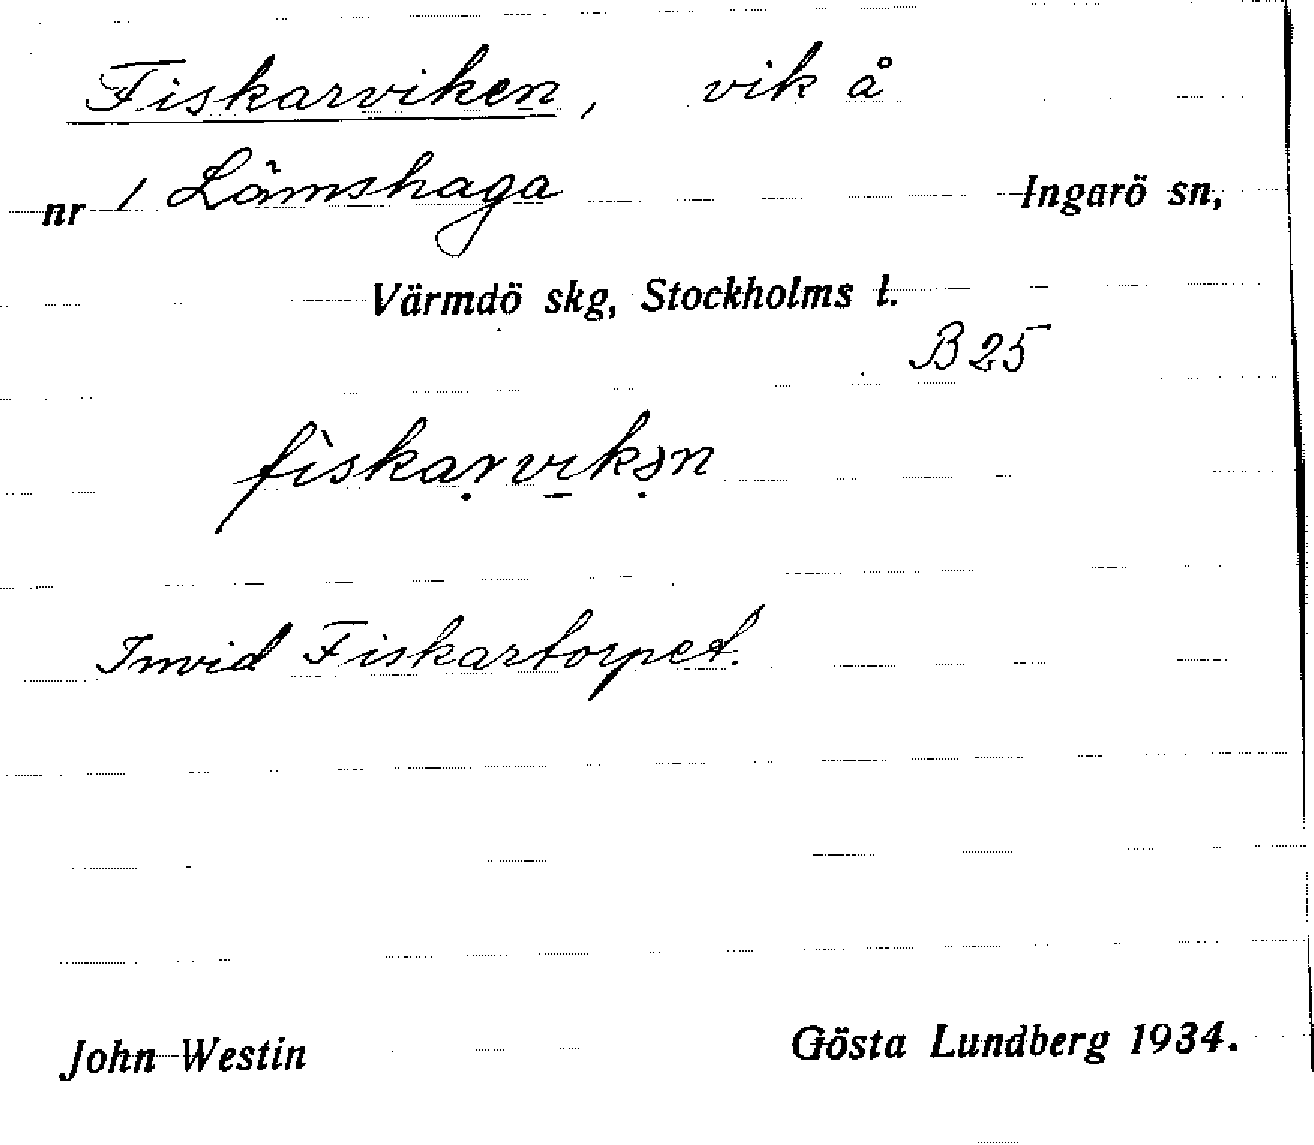 Fiskarviken, vik å
nr 1 Lämshaga Ingarö sn,
Värmdö skg, Stockholms l.
B 25
fìskaṛvi̱kə̣n
Invid Fiskartorpet.
John Westin Gösta Lundberg 1934.